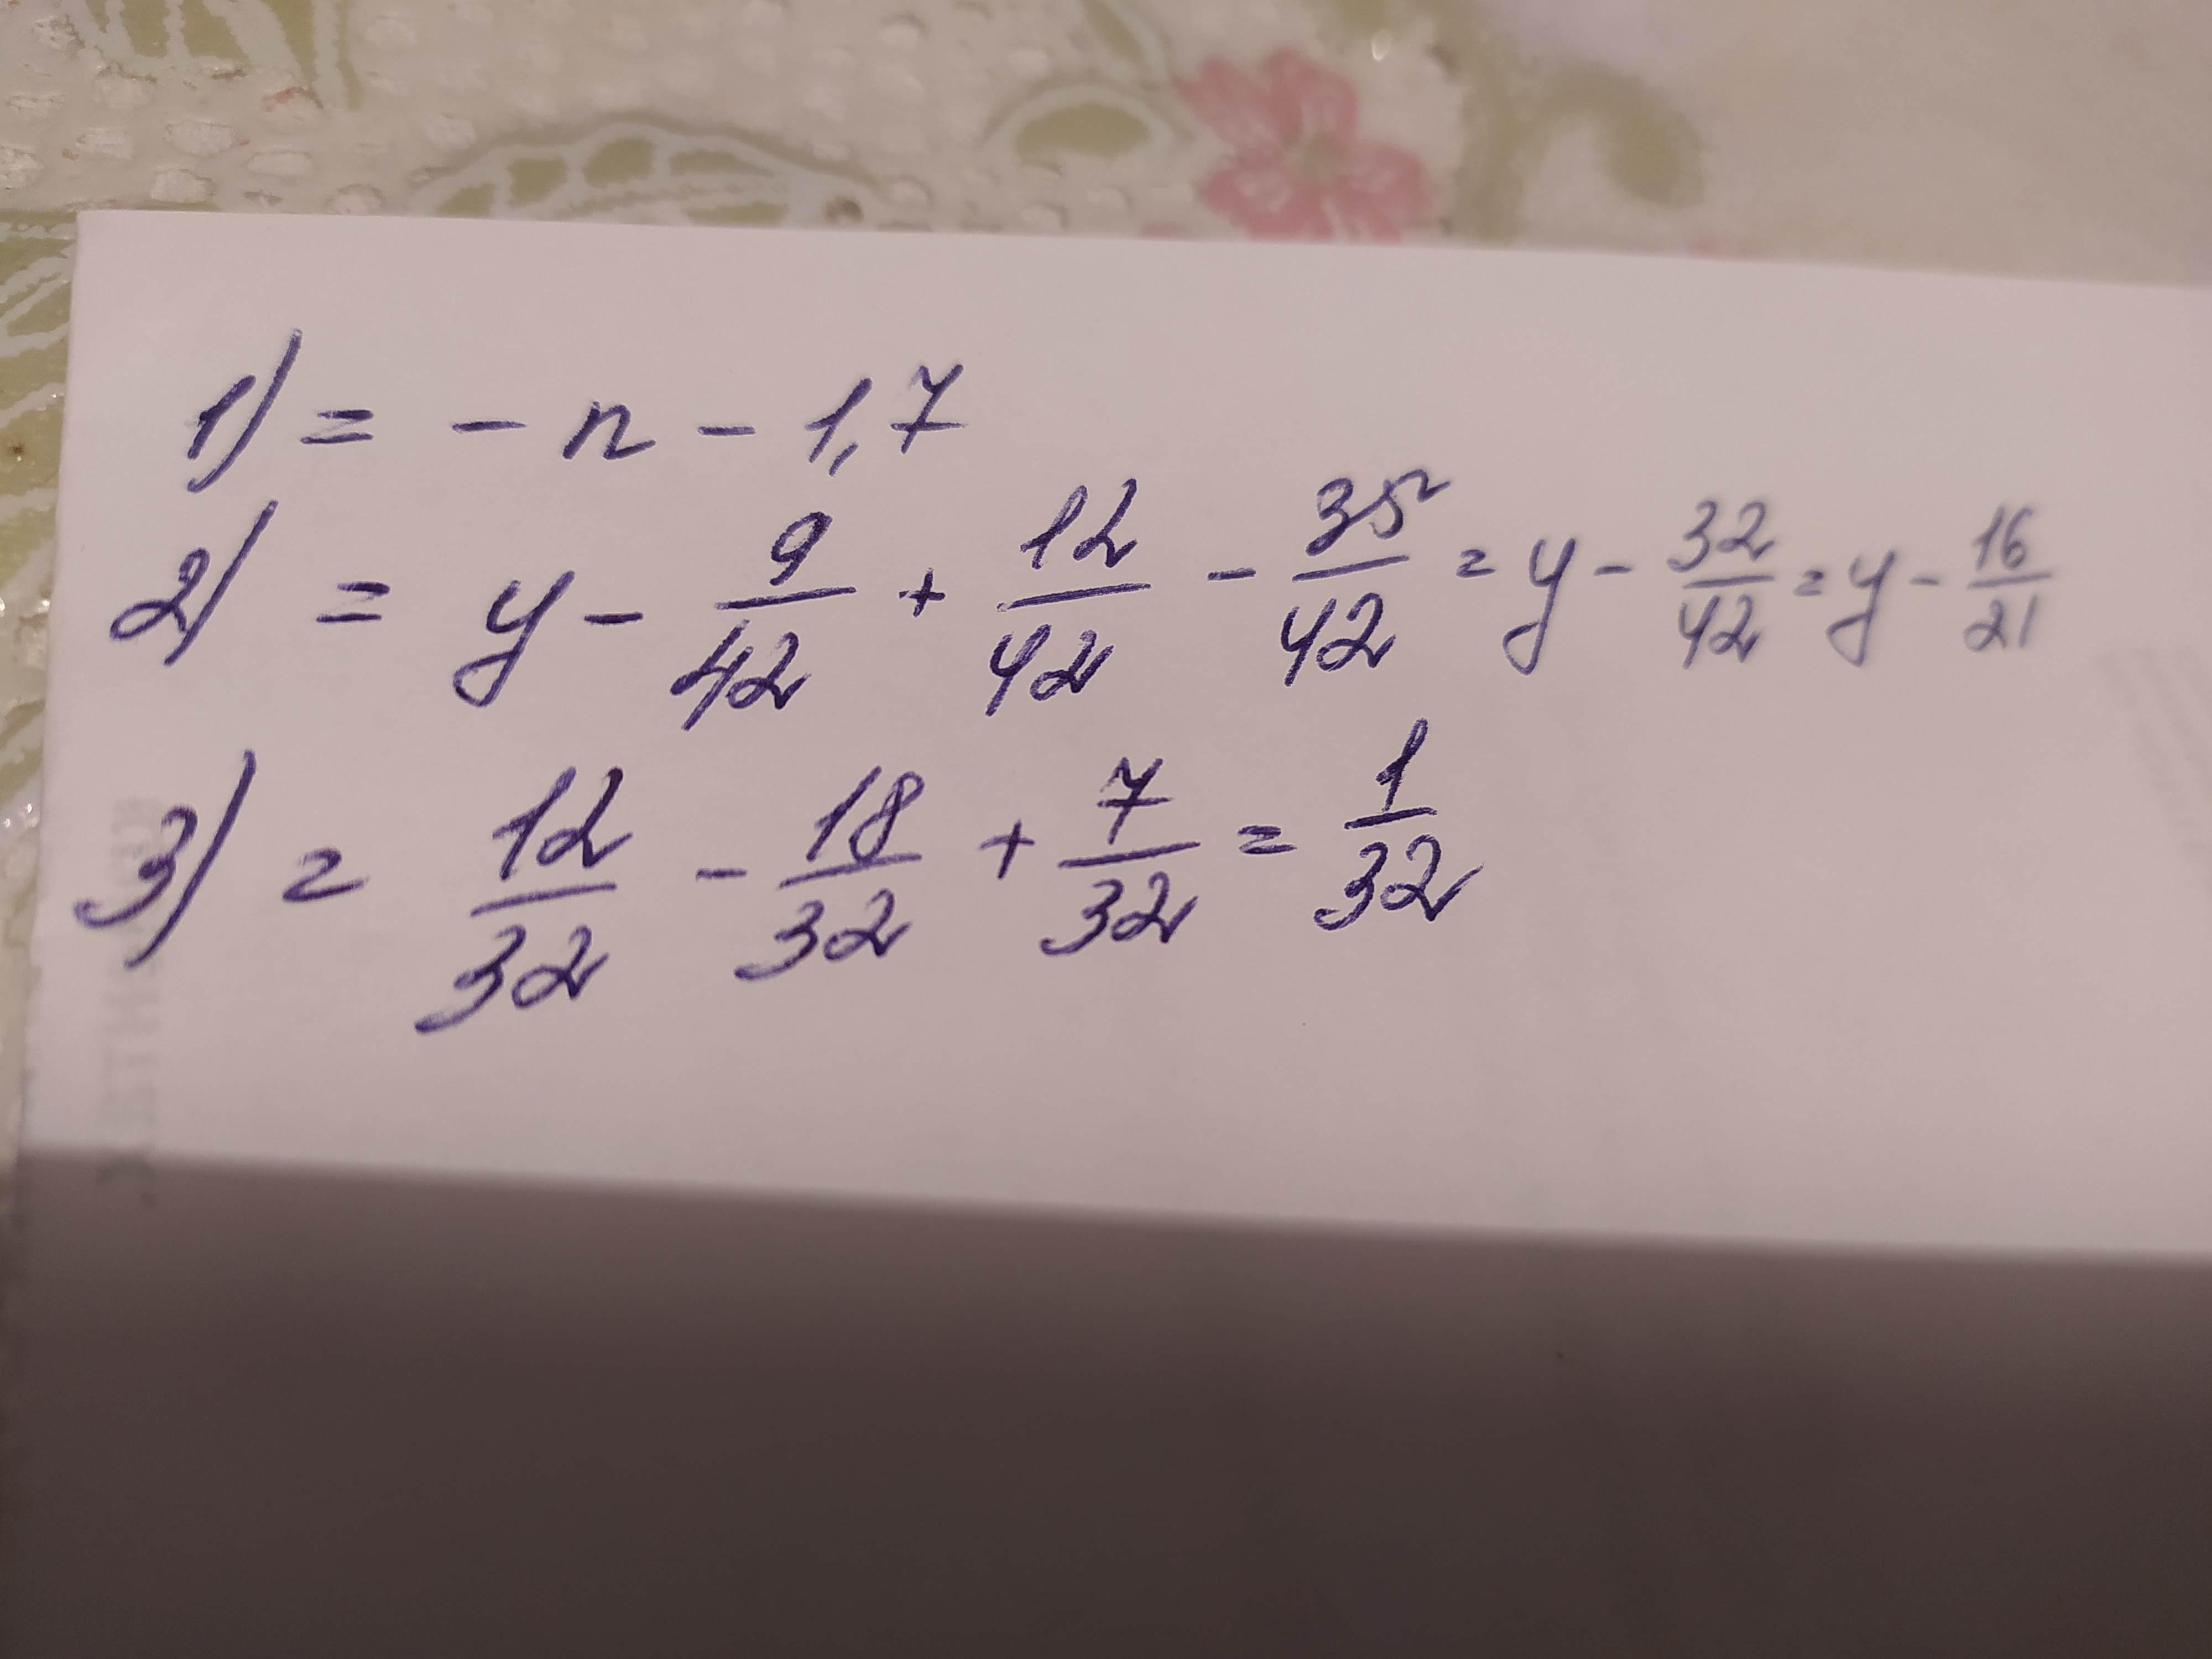 1) = - n - 1,7
2) = y - 9/42 + 12/42 - 35/42 = y - 32/42 = y - 16/21
3) = 12/32 - 18/32 + 7/32 = 1/32